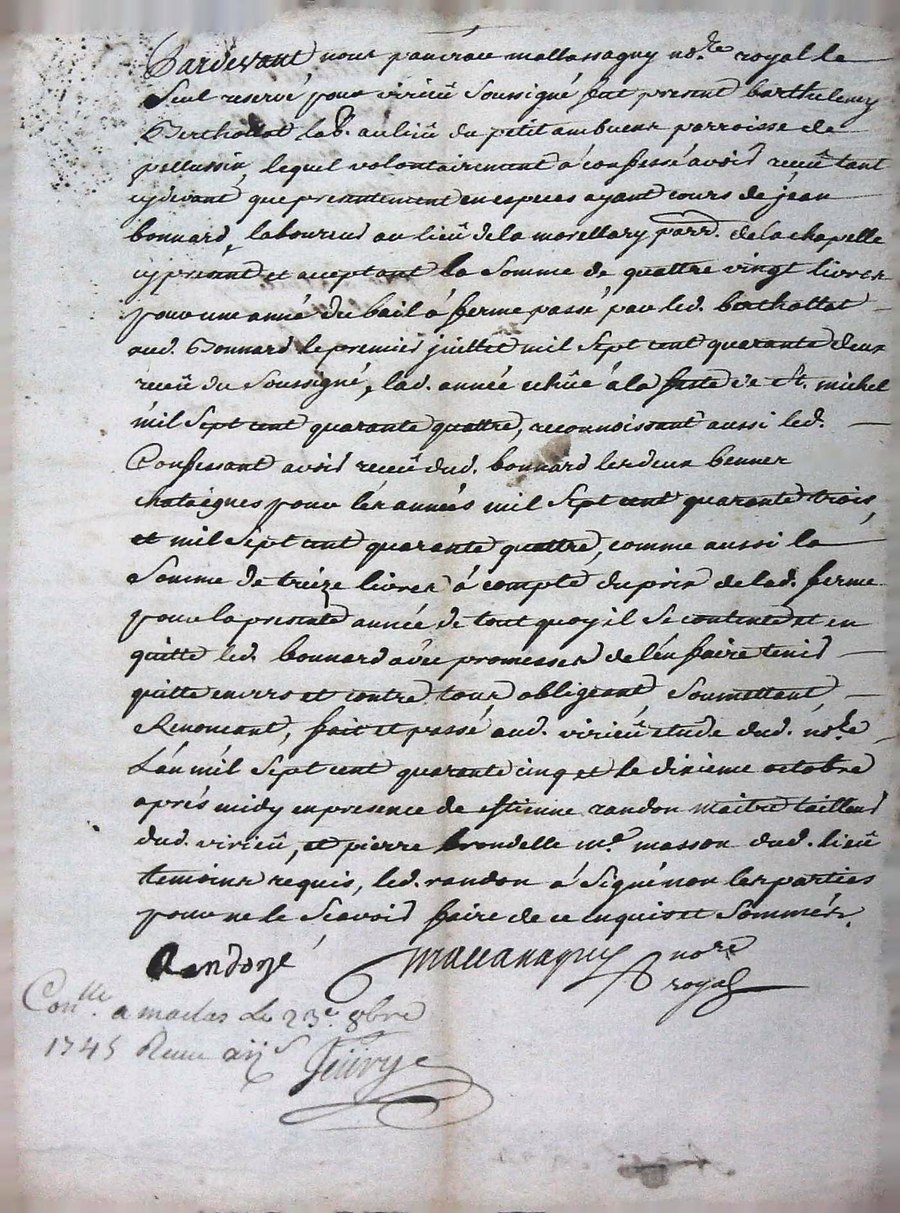 Pardevant nous pancrace mallassagny no.re royal le
Seul reservé pour virieü soussigné fut present barthelemy
Berthollot lab.r au lieü du petit ambuent parroisse de
pellussin, lequel volontairement a confessé avoir receü tant
cydevant que presentement en especes ayant cours de jean
bonnard, laboureur au lieü de la morellary parr.e de la chapelle
cy present et aceptant la somme de quattre vingt livres
pour une année du bail a ferme passé par led. berthollot
aud. Bonnard le premier juillet mil sept cent quarante deux
receü du soussigné, lad. année echüe a la fette de st. michel
mil sept cent quarante quattre, reconnoissant aussi led.
Confessant avoir receü dud. bonnard les deux bennes
chataignes pour les années mil sept cent quarante trois,
et mil sept cent quarante quattre, comme aussi la
somme de treize livres a compte du prix de lad. ferme
pour la presente année de tout quoy il se contente et en
quitte led. bonnard avec promesses de l'en faire tenir
quitte envers et contre tous obligeant, soumettant
Renoncant, fait et passé aud. virieü etude dud. no.re
L'an mil sept cent quarante cinq et le dixieme octobre
aprés midy en presence de estienne randon maitre tailleur
dud. virieü, et pierre brondelle m.e masson dud. lieü
temoins requis, led. randon a signé non les parties
pour ne le scavoir faire de ce enquis et sommés.
Randon mallassagny no.re
royal
Con.lle a maclas le 23.e 8bre
1745 Receu